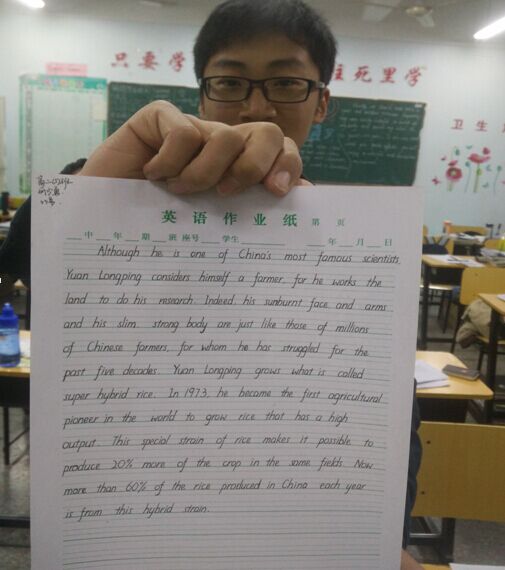 只要学
往死里学
卫生
英语作业纸 第 页
中 年 期 班 座号 学生 年 月 日
Although he is one of China's most famous scientists,
Yuan Longping considers himself a farmer, for he works the
land to do his research. Indeed, his sunburnt face and arms
and his slim, strong body are just like those of millions
of Chinese farmers, for whom he has struggled for the
past five decades. Yuan Longping grows what is called
super hybrid rice. In 1973, he became the first agricultural
pioneer in the world to grow rice that has a high
output. This special strain of rice makes it possible to
produce 20% more of the crop in the same fields. Now
more than 60% of the rice produced in China each year
is from this hybrid strain.